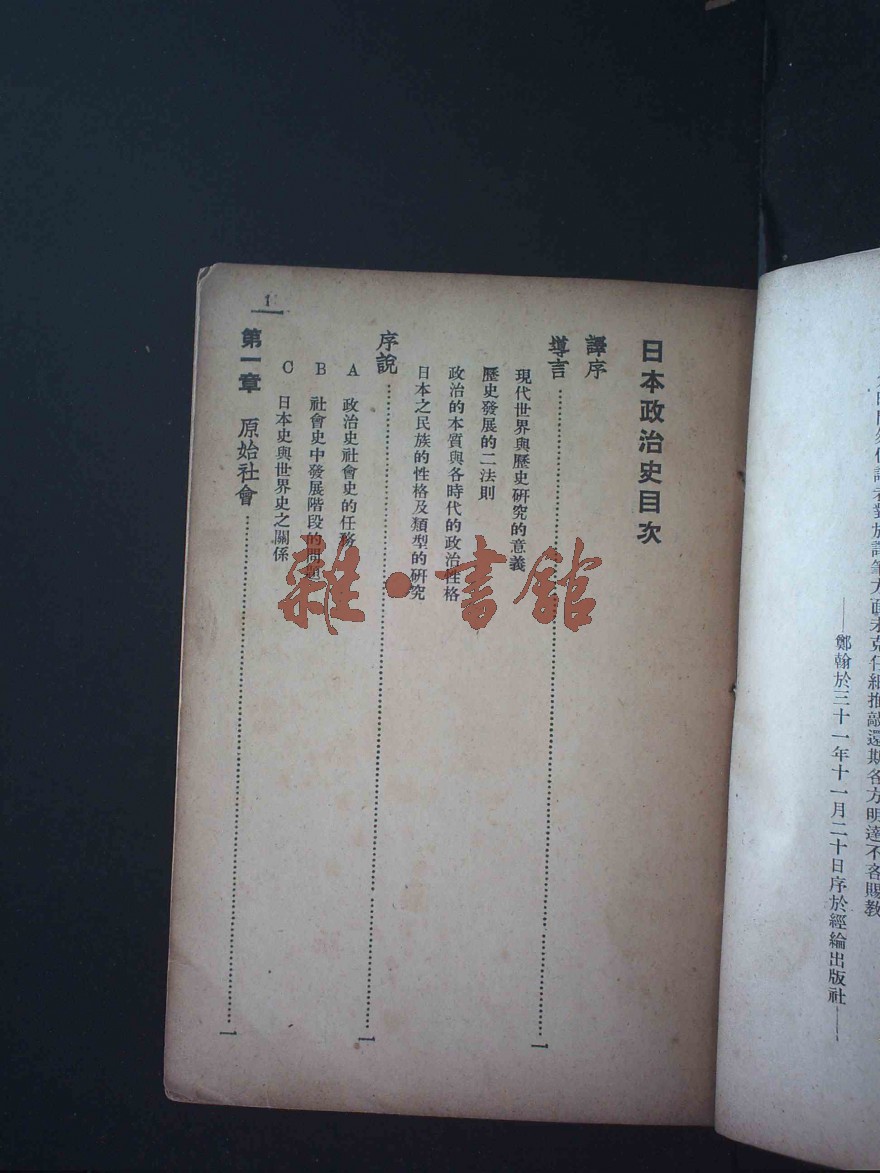 對於譯筆方面未克仔細推敲還期各方明達不吝賜教
——鄭翰於三十一年十一月二十日序於經綸出版社——
日本政治史目次
譯序
導言……1
現代世界與歷史研究的意義
歷史發展的二法則
政治的本質與各時代的政治性格
日本之民族的性格及類型的研究
序說……1
A 政治史社會史的任務
B 社會史中發展階段的問題
C 日本史與世界史之關係
第一章 原始社會……1
1
雜·書館